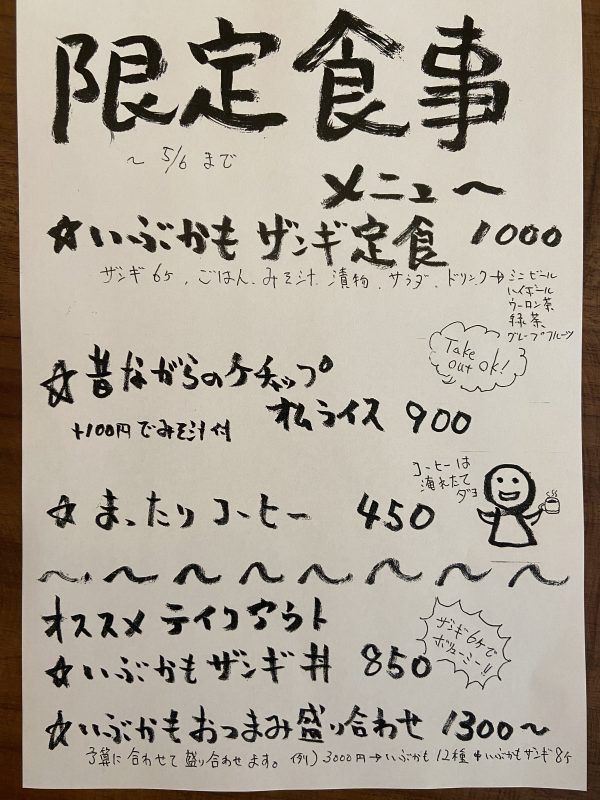 限定食事
〜 5/6 まで
メニュ〜
☆いぶかも ザンギ定食 1000
ザンギ 6ケ、ごはん、みそ汁、漬物、サラダ、ドリンク→ミニビール
ハイボール
ウーロン茶
緑茶、
グレープフルーツ
Take
out OK!
☆昔ながらのケチャップ
オムライス 900
+100円でみそ汁付
コーヒーは
淹れたて
ダヨ
☆まったりコーヒー 450
オススメ テイクアウト
ザンギ6ケで
ボリューミー!!
☆いぶかもザンギ丼 850
☆いぶかもおつまみ盛り合わせ 1300〜
予算に合わせて盛り合わせます。例) 3000円→いぶかも12種+いぶかもザンギ8ケ